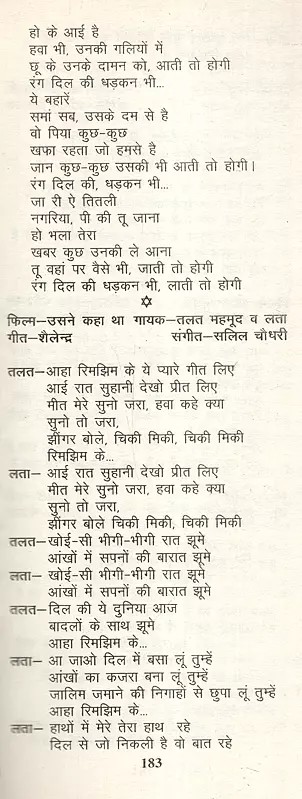 हो के आई है
हवा भी, उनकी गलियों में
छू के उनके दामन को, आती तो होगी
रंग दिल की धड़कन भी...
ये बहारें
समां सब, उसके दम से है
वो पिया कुछ-कुछ
खफा रहता जो हमसे है
जान कुछ-कुछ उसकी भी आती तो होगी।
रंग दिल की, धड़कन भी...
जा री ऐ तितली
नगरिया, पी की तू जाना
हो भला तेरा
खबर कुछ उनकी ले आना
तू वहां पर वैसे भी, जाती तो होगी
रंग दिल की धड़कन भी, लाती तो होगी
फिल्म–उसने कहा था गायक–तलत महमूद व लता
गीत–शैलेन्द्र संगीत–सलिल चौधरी
तलत– आहा रिमझिम के ये प्यारे गीत लिए
आई रात सुहानी देखो प्रीत लिए
मीत मेरे सुनो जरा, हवा कहे क्या
सुनो तो जरा,
झींगर बोले, चिकी मिकी, चिकी मिकी
रिमझिम के...
लता– आई रात सुहानी देखो प्रीत लिए
मीत मेरे सुनो जरा, हवा कहे क्या
सुनो तो जरा,
झींगर बोले चिकी मिकी, चिकी मिकी
तलत–खोई-सी भीगी-भीगी रात झूमे
आंखों में सपनों की बारात झूमे
लता– खोई-सी भीगी-भीगी रात झूमे
आंखों में सपनों की बारात झूमे
तलत–दिल की ये दुनिया आज
बादलों के साथ झूमे
आहा रिमझिम के...
लता– आ जाओ दिल में बसा लूं तुम्हें
आंखों का कजरा बना लूं तुम्हें
जालिम जमाने की निगाहों से छुपा लूं तुम्हें
आहा रिमझिम के...
लता– हाथों में मेरे तेरा हाथ रहे
दिल से जो निकली है वो बात रहे
183